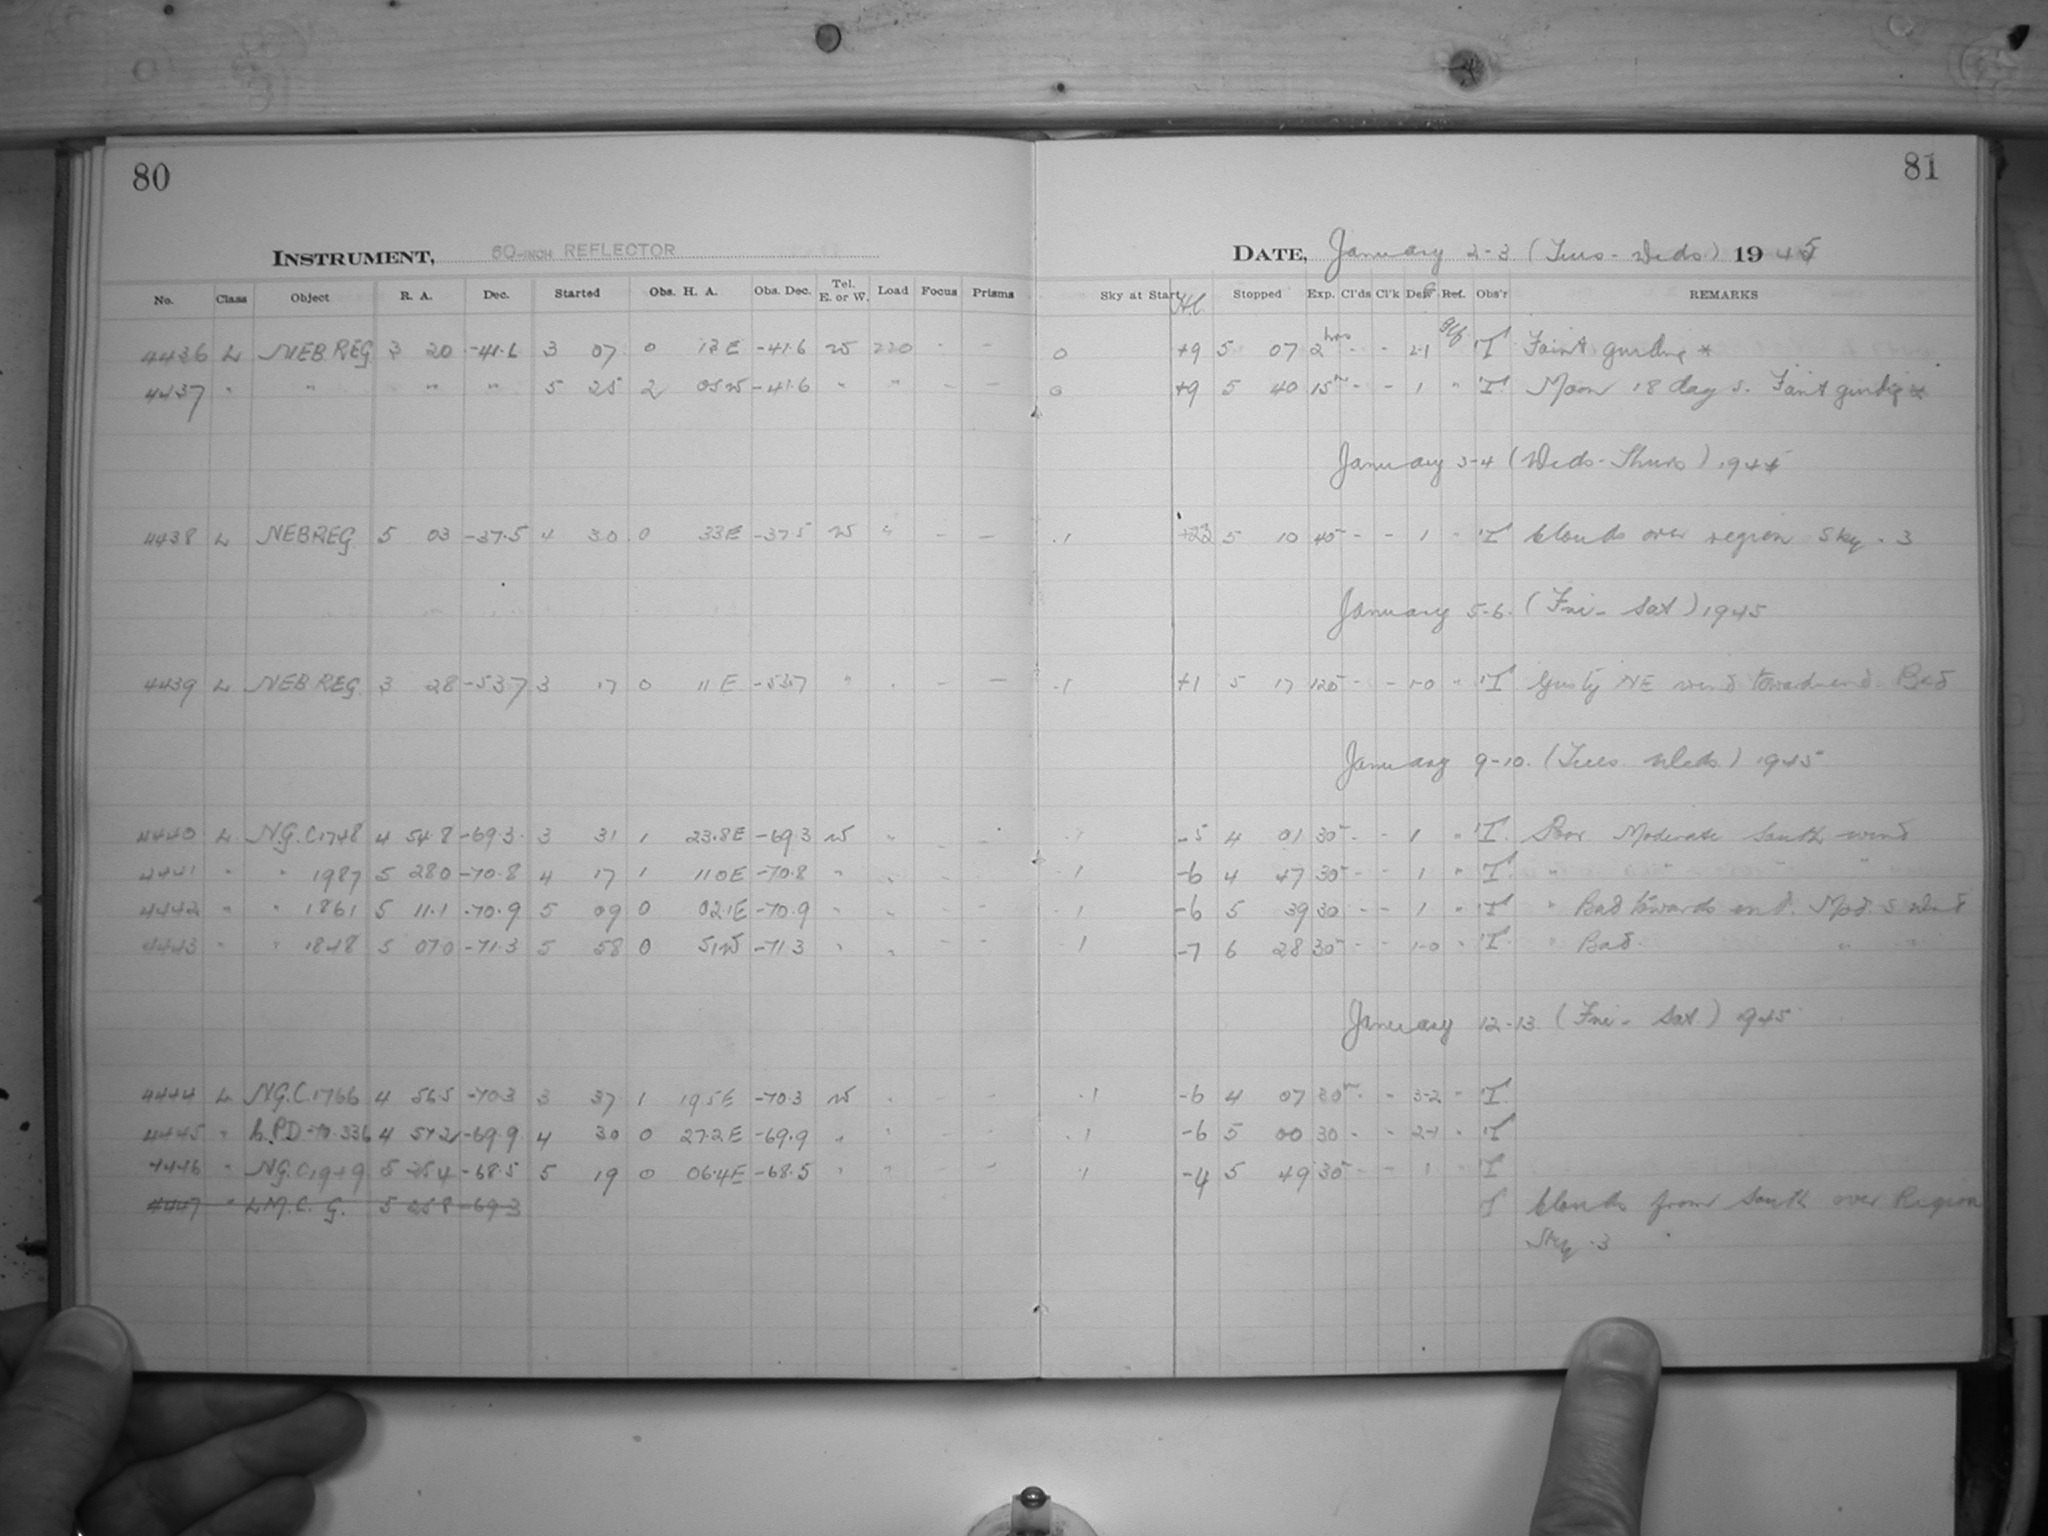 80
81
INSTRUMENT, 60-INCH REFLECTOR
DATE, January 2-3 (Tues - Weds) 1945
No. Class Object R. A. Dec. Started Obs. H. A. Obs. Dec. Tel. E. or W. Load Focus Prisms Sky at Start Stopped Exp. Cl'ds Cl'k Dew Ref. Obs'r REMARKS
4436 L NEB REG 3 20 -41.6 3 07 0 13 E -41.6 W 220 - - 0 +9 5 07 2 hrs - - 2-1 T Faint guiding *
4437 " " " " 5 25 2 05 W -41.6 " " - - 0 +9 5 40 15m - - 1 " T Moon 18 days. Faint guiding *
January 3-4 (Weds - Thurs) 1945
4438 L NEB REG 5 03 -37.5 4 30 0 33 E -37.5 W " - - .1 +22 5 10 40 - - 1 " T Clouds over region Sky .3
January 5-6. (Fri - Sat) 1945
4439 L NEB REG 3 28 -53.7 3 17 0 11 E -53.7 " " - - .1 +1 5 17 120 - - 1-0 " T Gusty NE wind toward end. Bad
January 9-10. (Tues Weds) 1945
4440 L N.G.C 1748 4 54.8 -69.3 3 31 1 23.8 E -69.3 W " - - .1 -5 4 01 30 - - 1 " T. Poor Moderate South wind
4441 " " 1987 5 28.0 -70.8 4 17 1 11.0 E -70.8 " " - - .1 -6 4 47 30 - - 1 " T " " " "
4442 " " 1861 5 11.1 -70.9 5 09 0 02.1 E -70.9 " " - - .1 -6 5 39 30 - - 1 " T " Bad towards end. Mod. S Wind
4443 " " 1848 5 07.0 -71.3 5 58 0 51 W -71.3 " " - - .1 -7 6 28 30 - - 1-0 " T " Bad. " "
January 12-13 (Fri - Sat.) 1945
4444 L N.G.C. 1766 4 56.5 -70.3 3 37 1 19.5 E -70.3 W " - - .1 -6 4 07 30m - - 3-2 " T.
4445 " C.P.D -70.336 4 57.2 -69.9 4 30 0 27.2 E -69.9 " " - - .1 -6 5 00 30 - - 2-1 " T
4446 " N.G.C 1949 5 25.4 -68.5 5 19 0 06.4 E -68.5 " " - - .1 -4 5 49 30 - - 1 " T
4447 " L.M.C. G. 5 25.8 -69.3 T Clouds from South over Region
Sky .3